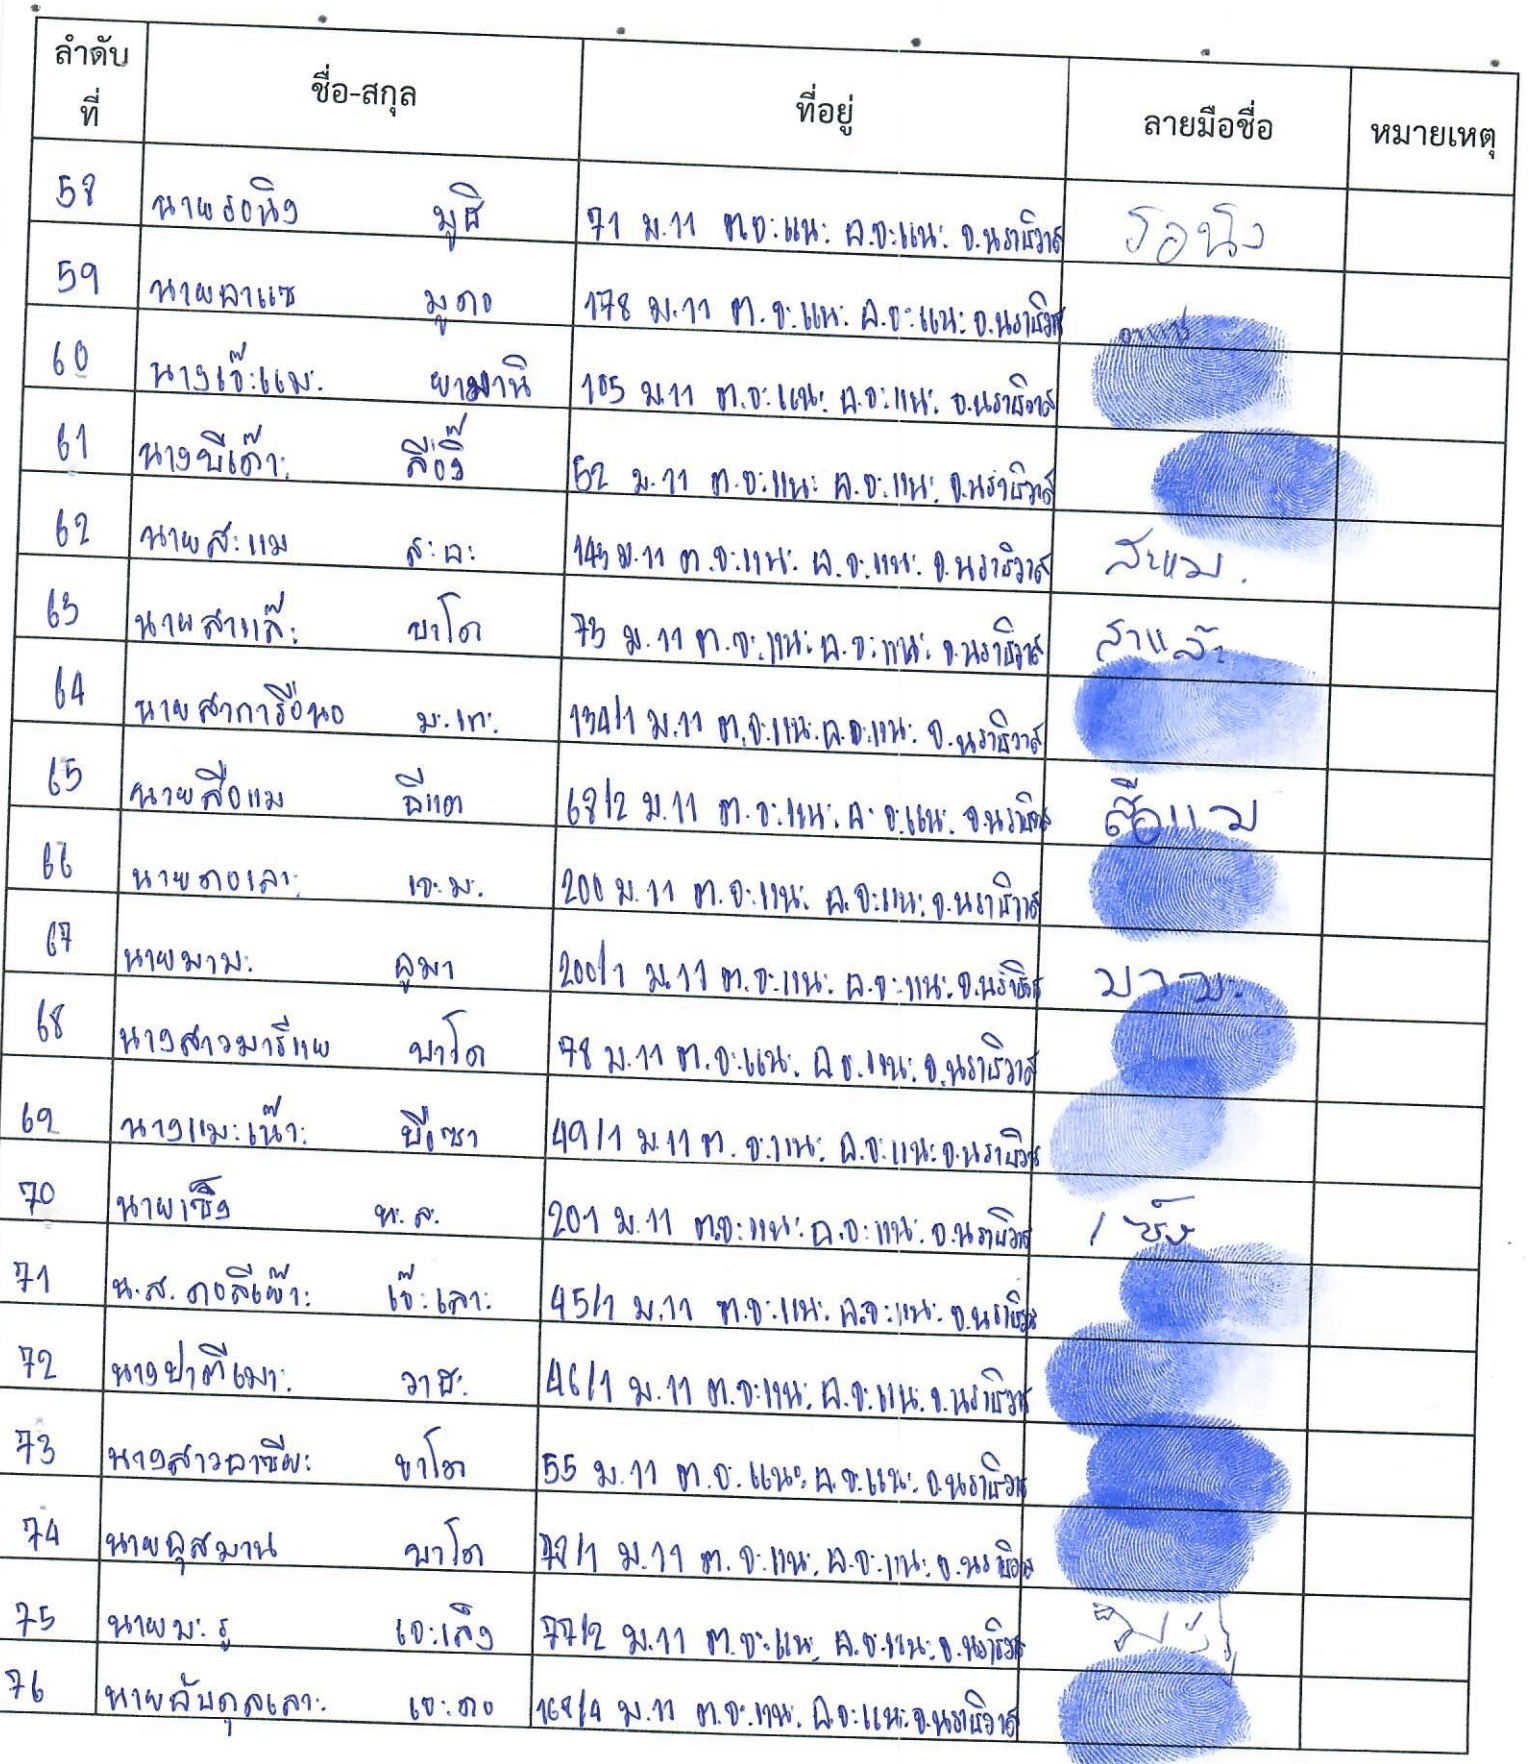 ลำดับที่ ชื่อ-สกุล ที่อยู่ ลายมือชื่อ หมายเหตุ
58 นายรอนิง มูซิ 71 ม.11 ต.จะแนะ อ.จะแนะ จ.นราธิวาส รอนิง
59 นายอาแซ มูดอ 178 ม.11 ต.จะแนะ อ.จะแนะ จ.นราธิวาส
60 นางเจ๊ะแมะ ยามานิ 105 ม.11 ต.จะแนะ อ.จะแนะ จ.นราธิวาส
61 นางบีเด๊าะ 52 ม.11 ต.จะแนะ อ.จะแนะ จ.นราธิวาส
62 นายสะแม สะอะ 143 ม.11 ต.จะแนะ อ.จะแนะ จ.นราธิวาส สะแม.
63 นายสาแล๊ะ บาโด 73 ม.11 ต.จะแนะ อ.จะแนะ จ.นราธิวาส สาแล๊ะ
64 นายสาการือนอ มะเทะ 134/1 ม.11 ต.จะแนะ อ.จะแนะ จ.นราธิวาส
65 นายสือแม อีแต 68/2 ม.11 ต.จะแนะ อ.จะแนะ จ.นราธิวาส สือแม
66 นายดอเลาะ เจะมะ 200 ม.11 ต.จะแนะ อ.จะแนะ จ.นราธิวาส
67 นายมามะ อูมา 200/1 ม.11 ต.จะแนะ อ.จะแนะ จ.นราธิวาส มามะ
68 นางสาวมารีแย บาโด 78 ม.11 ต.จะแนะ อ.จะแนะ จ.นราธิวาส
69 นางแมะเน๊าะ บือซา 49/1 ม.11 ต.จะแนะ อ.จะแนะ จ.นราธิวาส
70 นายเซ็ง 201 ม.11 ต.จะแนะ อ.จะแนะ จ.นราธิวาส เซ็ง
71 น.ส.ดอลีเย๊าะ เจ๊ะเลาะ 45/1 ม.11 ต.จะแนะ อ.จะแนะ จ.นราธิวาส
72 นางปาตีเมาะ 46/1 ม.11 ต.จะแนะ อ.จะแนะ จ.นราธิวาส
73 นางสาวอาซียะ บาโด 55 ม.11 ต.จะแนะ อ.จะแนะ จ.นราธิวาส
74 นายอุสมาน บาโด 72/1 ม.11 ต.จะแนะ อ.จะแนะ จ.นราธิวาส
75 นายมะรู เจะเล็ง 77/2 ม.11 ต.จะแนะ อ.จะแนะ จ.นราธิวาส
76 นายอับดุลเลาะ เจะดอ 168/4 ม.11 ต.จะแนะ อ.จะแนะ จ.นราธิวาส